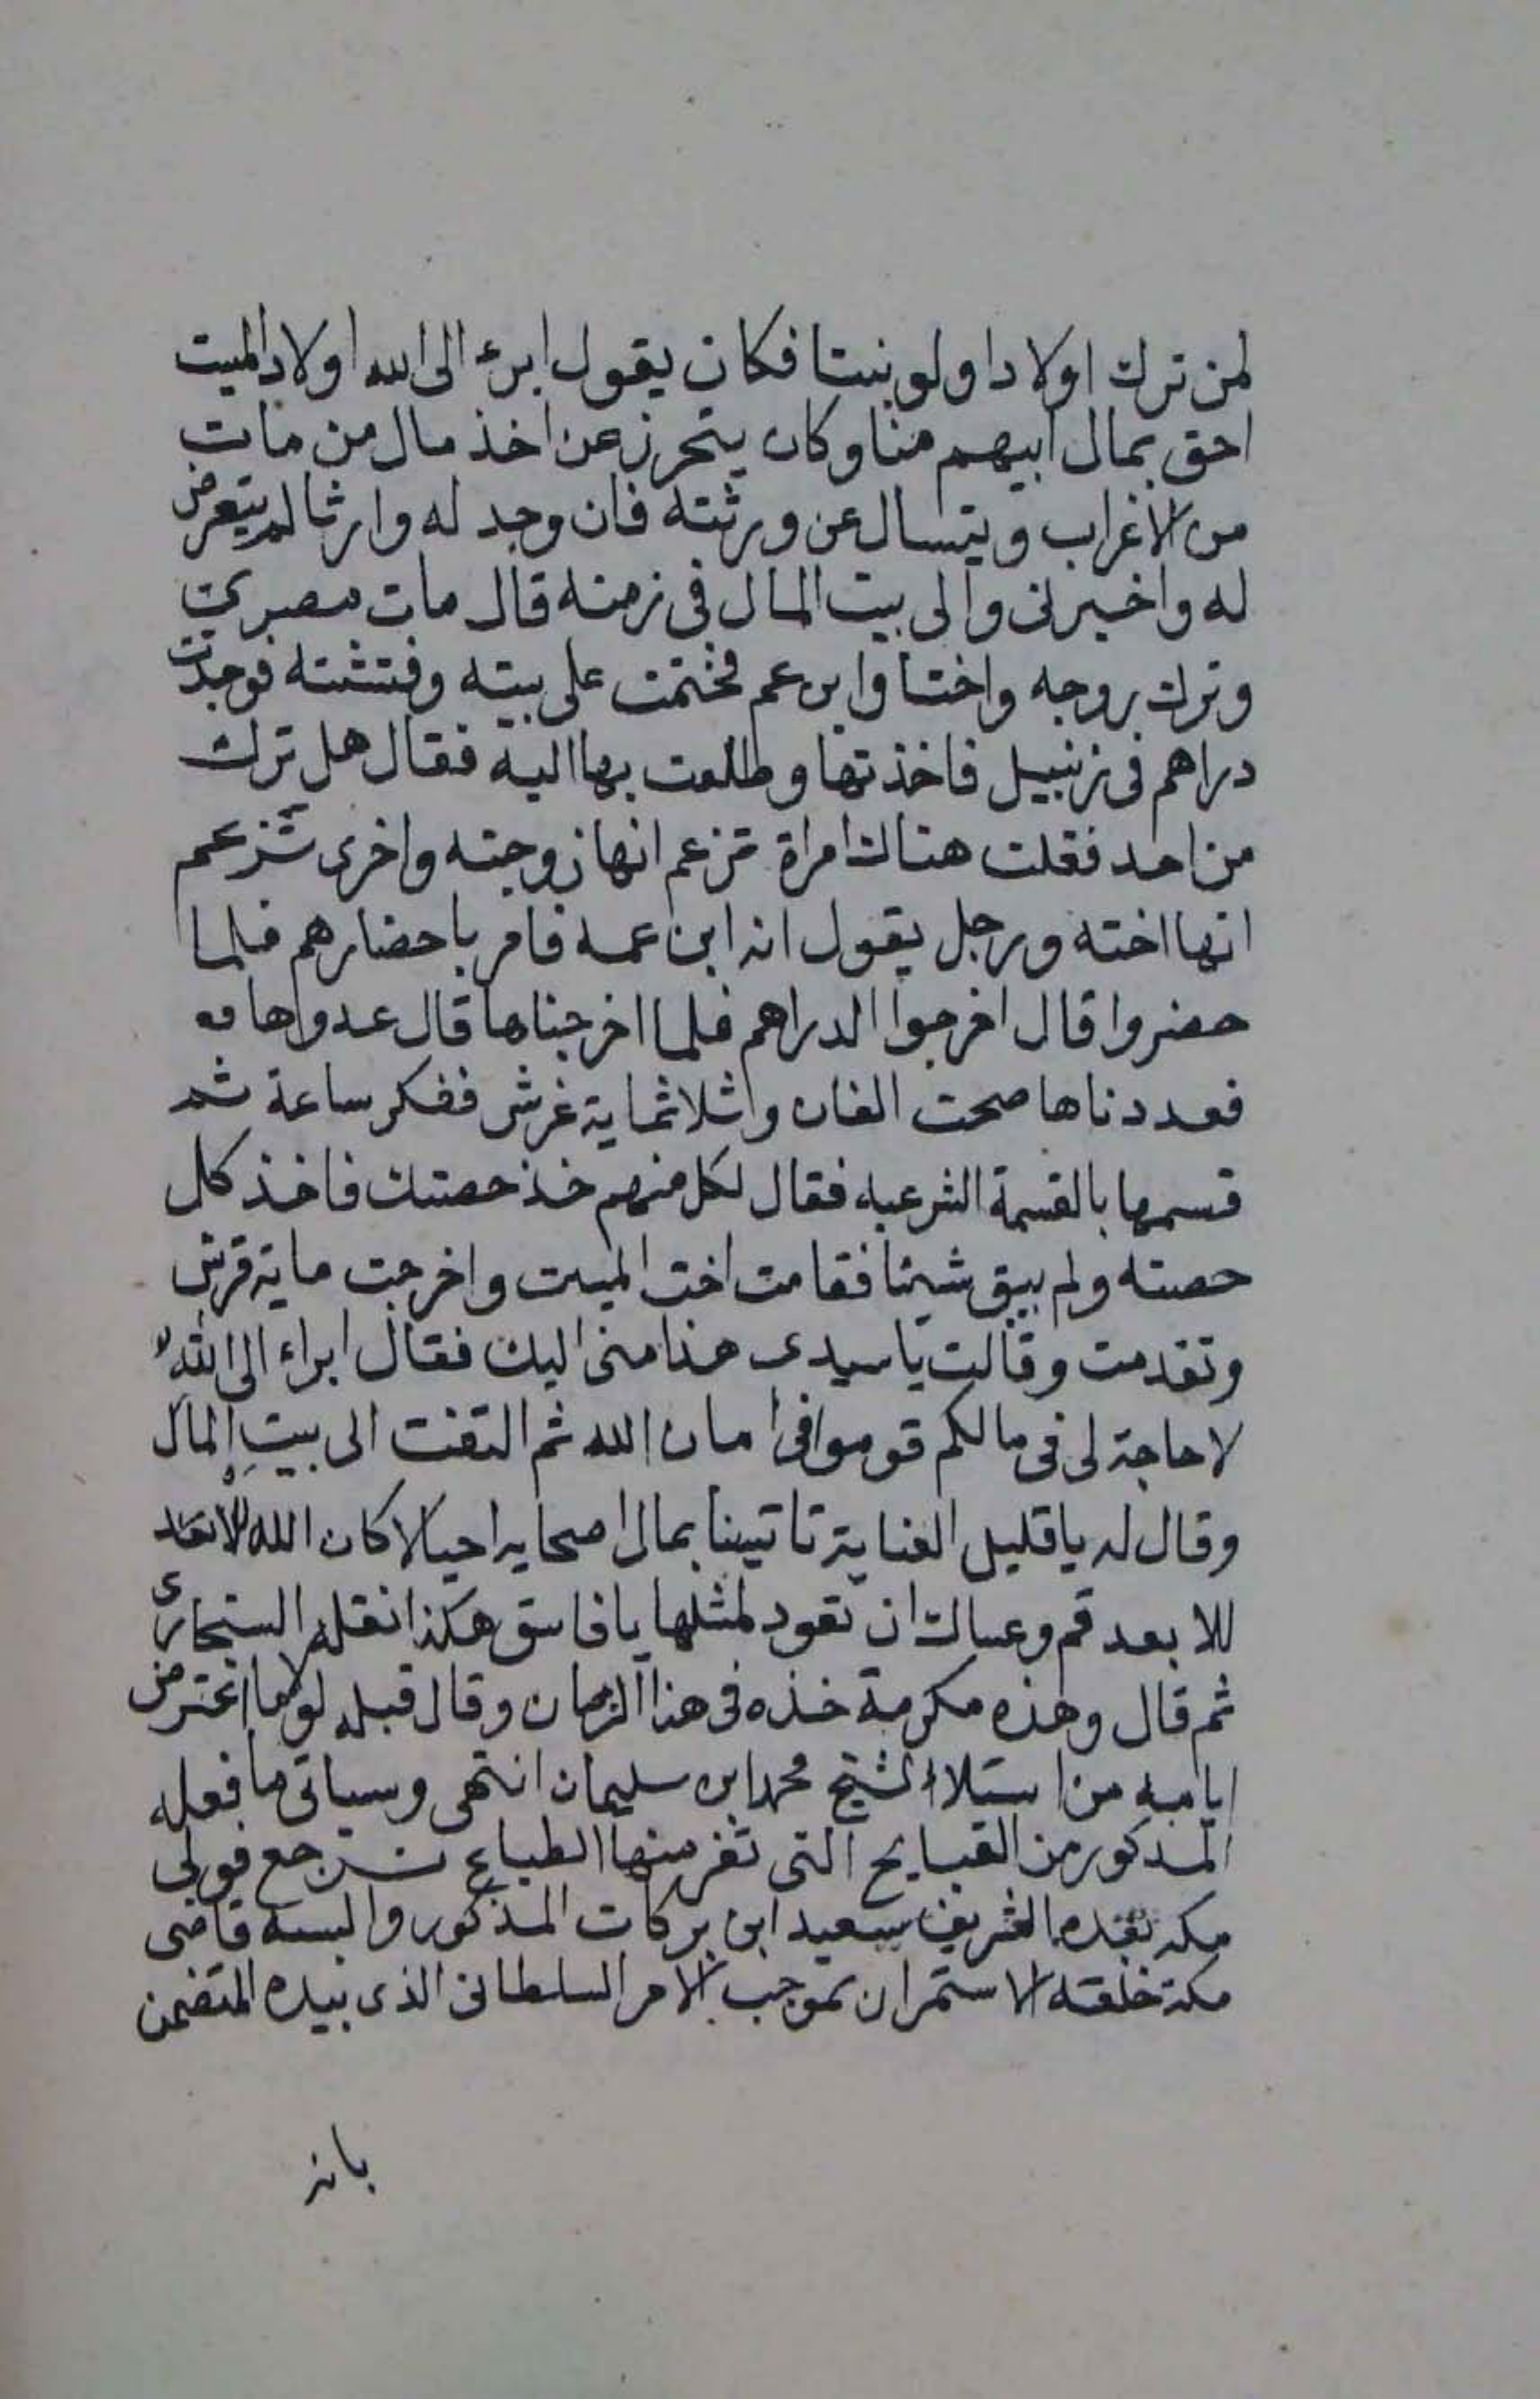 لمن ترك اولادا ولو بنتا فكان يقول ابرء الى الله اولاد الميت
احق بمال ابيهم منا وكان يتحرز عن اخذ مال من مات
من الاغراب ويتسال عن ورثته فان وجد له وارثا لم يتعرض
له واخبرنى والى بيت المال فى زمنه قال مات مصرى
وترك زوجه واختا وابن عم فختمت على بيته وفتشته فوجدت
دراهم فى زنبيل فاخذتها وطلعت بها اليه فقال هل ترك
من احد فقلت هناك امراة تزعم انها زوجته واخرى تزعم
انها اخته ورجل يقول انه ابن عمه فامر باحضارهم فلما
حضروا قال اخرجوا الدراهم فلما اخرجناها قال عدواها
فعددناها صحت الفان وثلاثماية غرش ففكر ساعة ثم
قسمها بالقسمة الشرعيه فقال لكل منهم خذ حصتك فاخذ كل
حصته ولم يبق شيئا فقامت اخت الميت واخرجت ماية قرش
وتقدمت وقالت يا سيدى هذا منى اليك فقال ابراء الى الله
لا حاجة لى فى مالكم قوموا فى امان الله ثم التفت الى بيت المال
وقال له يا قليل العناية تاتينا بمال اصحابه احيا لا كان الله
للابعد قم وعساك ان تعود لمثلها يا فاسق هكذا نقله السنجارى
ثم قال وهذه مكرمة خذه فى هذا الزمان وقال قبله لولا ما اعترض
ايامه من استلاء الشيخ محمد ابن سليمان انتهى وسياتى ما فعله
المذكور من القبايح التى تفر منها الطباع نرجع فولى
مكة بعده الشريف سعيد ابن بركات المذكور والبسه قاضى
مكة خلعته الاستمرار بموجب الامر السلطانى الذى بيده المتضمن
بانه